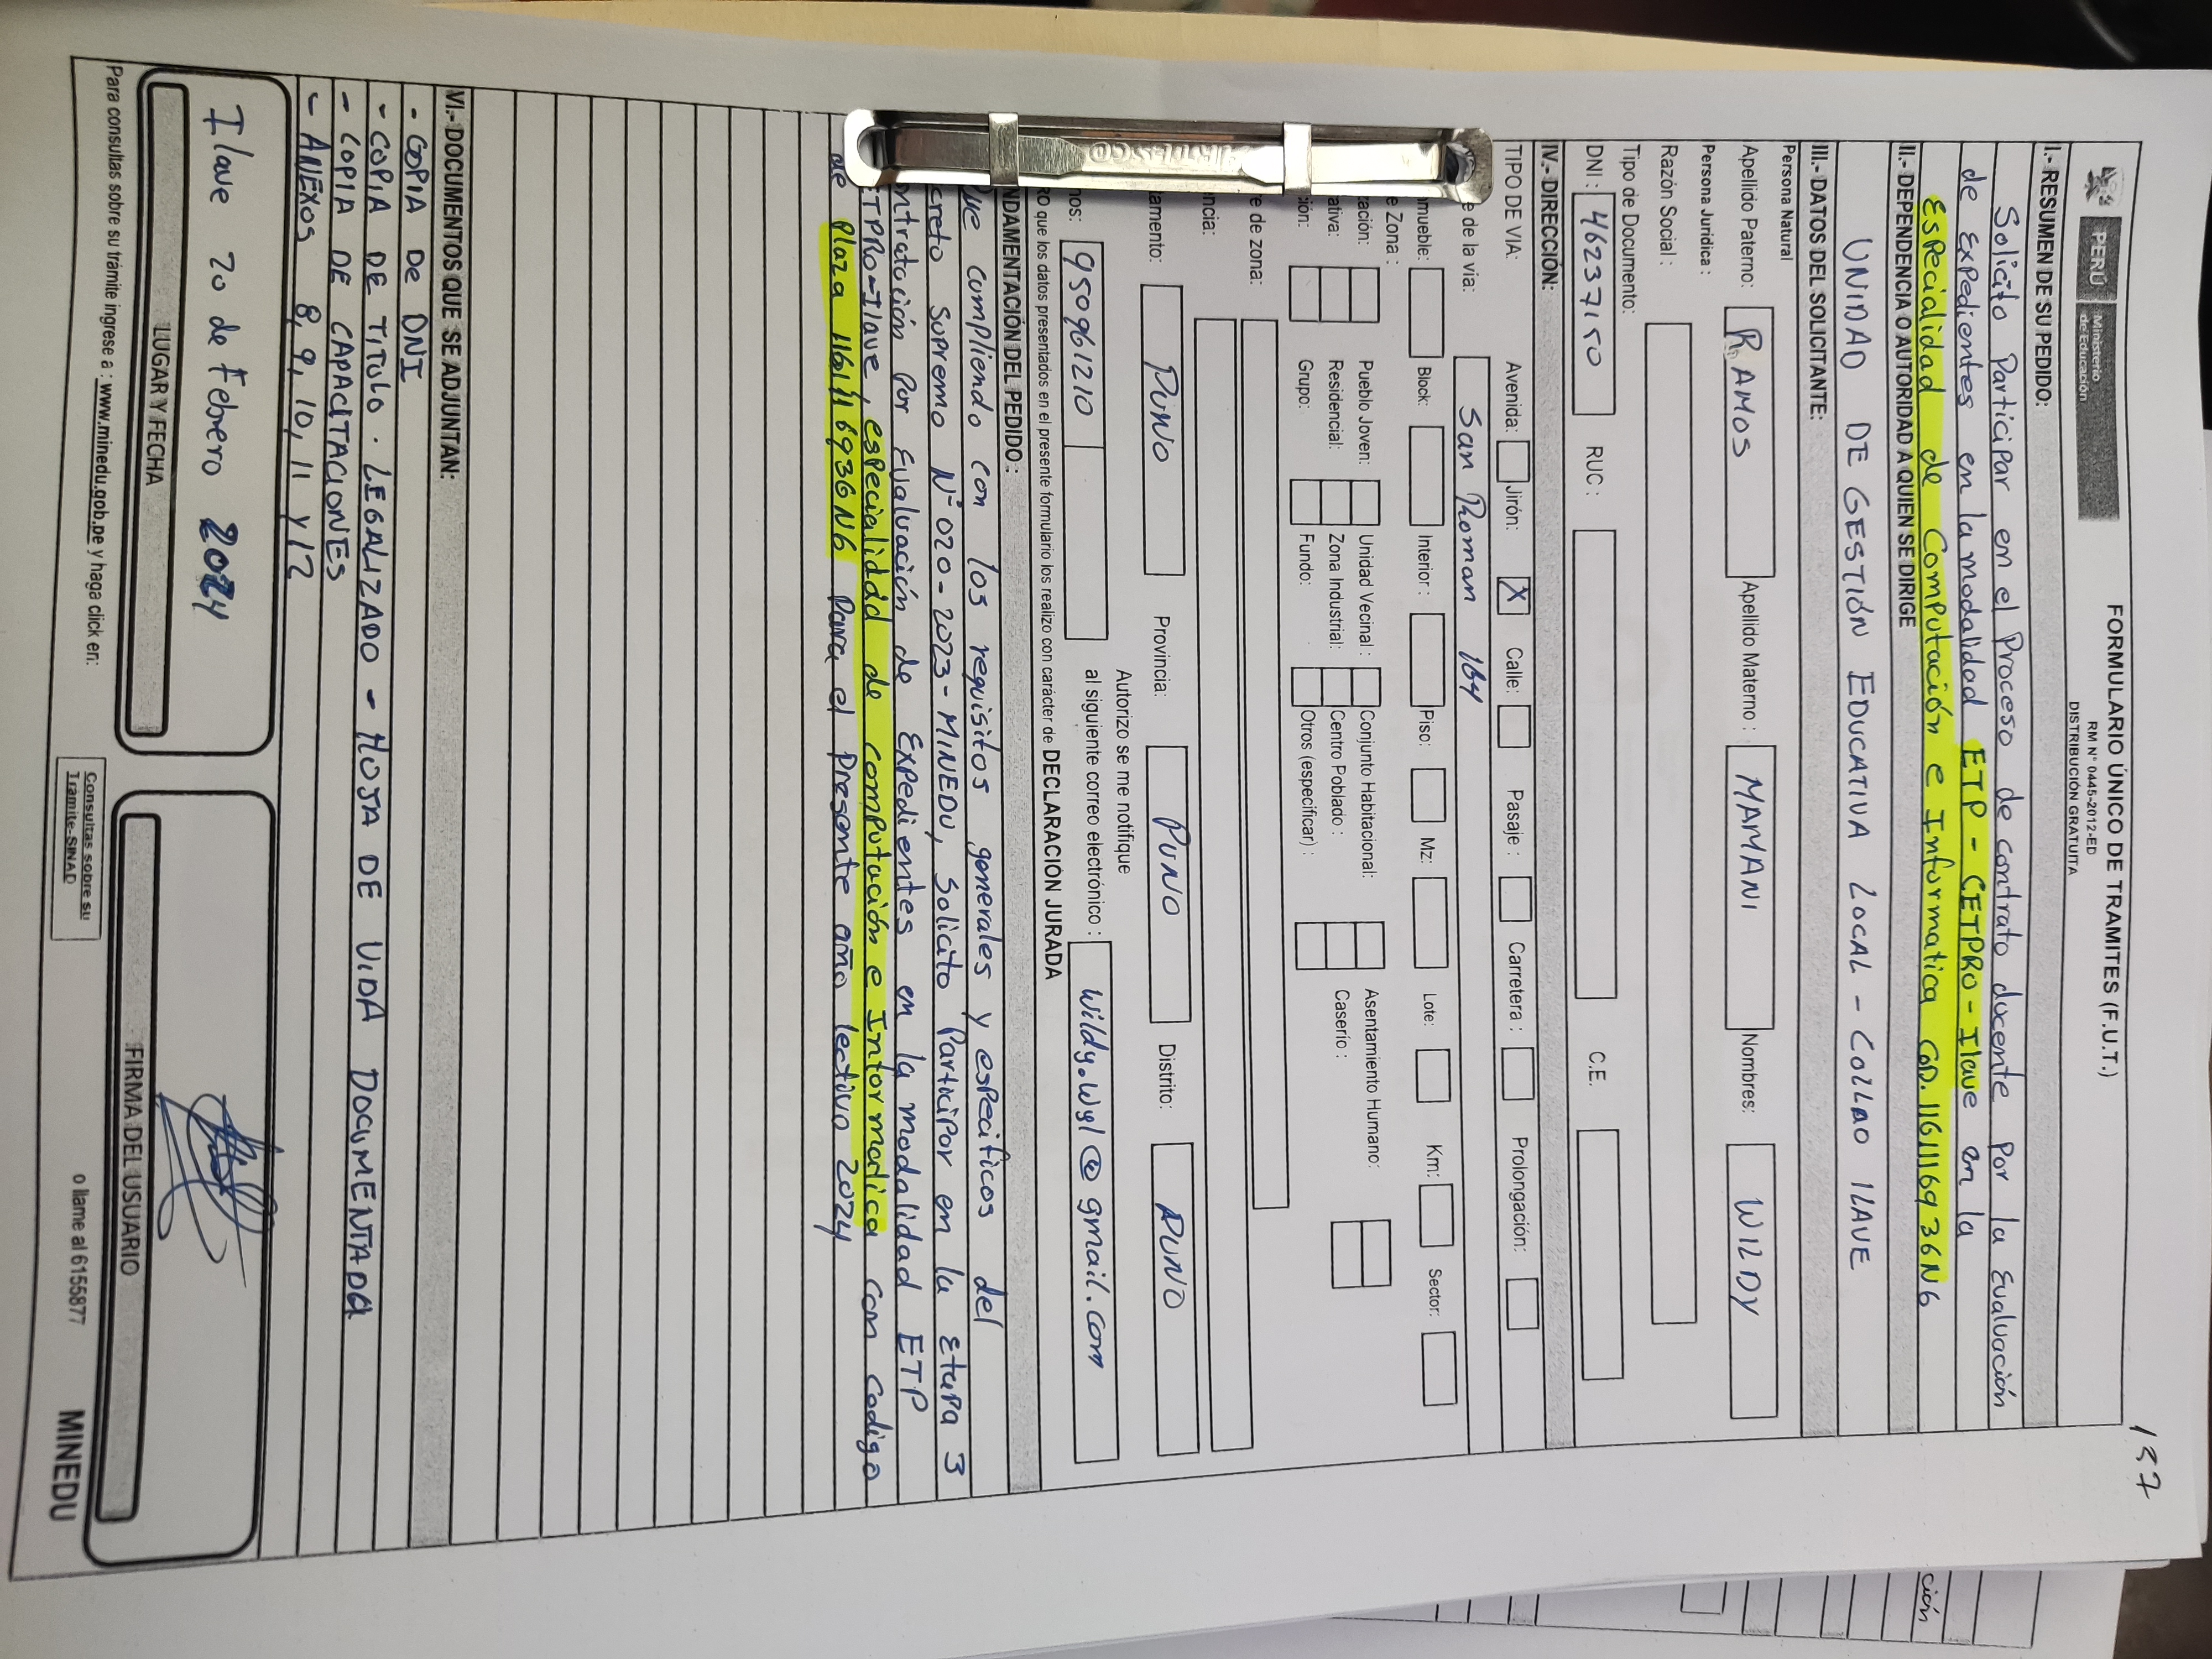 137
PERÚ Ministerio de Educación
FORMULARIO ÚNICO DE TRAMITES (F.U.T.)
RM N° 0445-2012-ED
DISTRIBUCIÓN GRATUITA
I.- RESUMEN DE SU PEDIDO:
Solicito Participar en el Proceso de contrato docente por la evaluación
de Expedientes en la modalidad ETP - CETPRO - Ilave en la
Especialidad de Computación e Informatica COD. 1161116936N6
II.- DEPENDENCIA O AUTORIDAD A QUIEN SE DIRIGE
UNIDAD DE GESTIÓN EDUCATIVA LOCAL - COLLAO ILAVE
III.- DATOS DEL SOLICITANTE:
Persona Natural
Apellido Paterno: RAMOS Apellido Materno: MAMANI Nombres: WILDY
Persona Juridica:
Razón Social:
Tipo de Documento:
DNI: 46237150 RUC: C.E.
IV.- DIRECCIÓN:
TIPO DE VIA: Avenida: Jirón: X Calle: Pasaje: Carretera: Prolongación:
e de la via: San Roman 164
nmueble: Block: Interior: Piso: Mz: Lote: Km: Sector:
e Zona:
zación: Pueblo Joven: Unidad Vecinal: Conjunto Habitacional: Asentamiento Humano:
ativa: Residencial: Zona Industrial: Centro Poblado: Caserío:
ción: Grupo: Fundo: Otros (especificar):
e de zona:
ncia:
tamento: PUNO Provincia: PUNO Distrito: PUNO
Autorizo se me notifique
nos: 950961210 al siguiente correo electrónico: wildy.wgl@gmail.com
ro que los datos presentados en el presente formulario los realizo con carácter de DECLARACIÓN JURADA
NDAMENTACIÓN DEL PEDIDO:
Que cumpliendo con los requisitos generales y especificos del
creto Supremo N° 020-2023-MINEDU, solicito Participar en la etapa 3
ontratación Por Evaluación de Expedientes en la modalidad ETP
ETPRO-Ilave, especialidad de computación e Informatica con codigo
de plaza 1161116936N6 Para el presente año lectivo 2024
VI.- DOCUMENTOS QUE SE ADJUNTAN:
- COPIA De DNI
- COPIA DE TITULO. LEGALIZADO - HOJA DE VIDA DOCUMENTADA
- COPIA DE CAPACITACIONES
- ANEXOS 8, 9, 10, 11 y 12
Ilave 20 de Febrero 2024
LUGAR Y FECHA
FIRMA DEL USUARIO
Para consultas sobre su trámite ingrese a: www.minedu.gob.pe y haga click en:
Consultas sobre su Tramite-SINAD
o llame al 6155877
MINEDU
ción